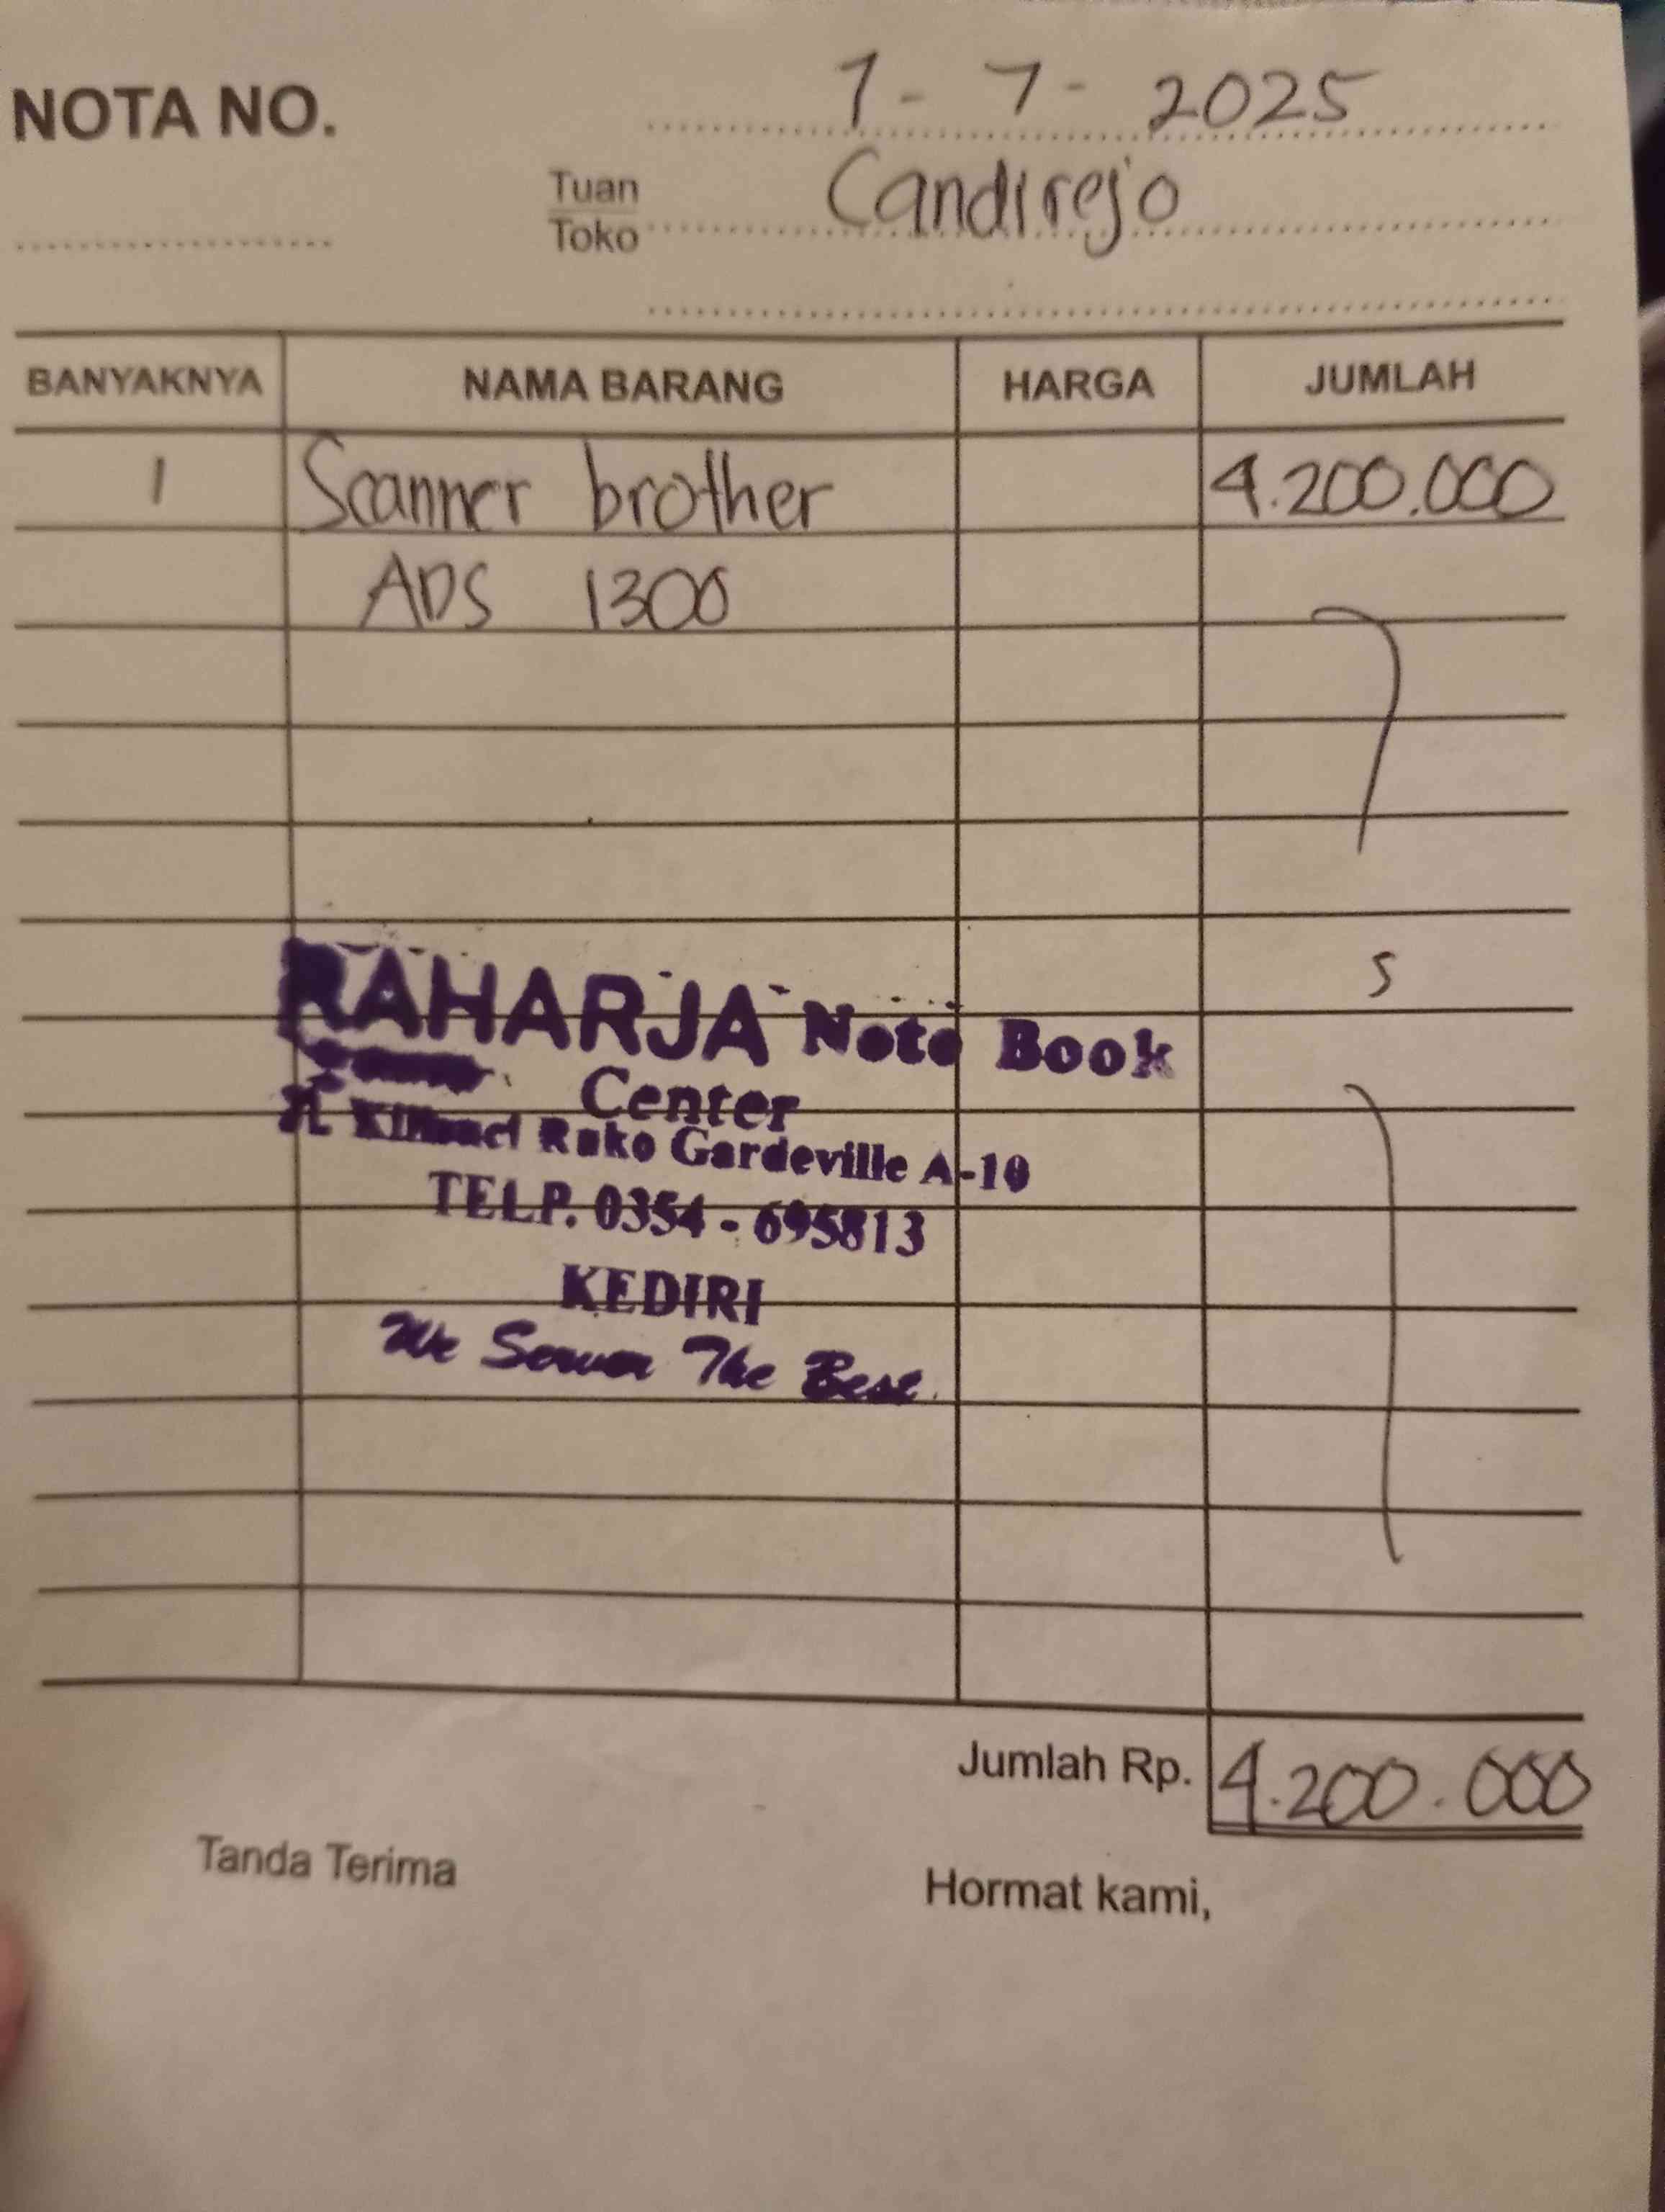 NOTA NO.
1 - 7 - 2025
Tuan
Toko
Candirejo
BANYAKNYA NAMA BARANG HARGA JUMLAH
1 Scanner brother 4.200.000
ADS 1300
RAHARJA Note Book
Center
Ruko Gardeville A-10
TELP. 0354 - 695813
KEDIRI
We The Best
Jumlah Rp. 4.200.000
Tanda Terima
Hormat kami,